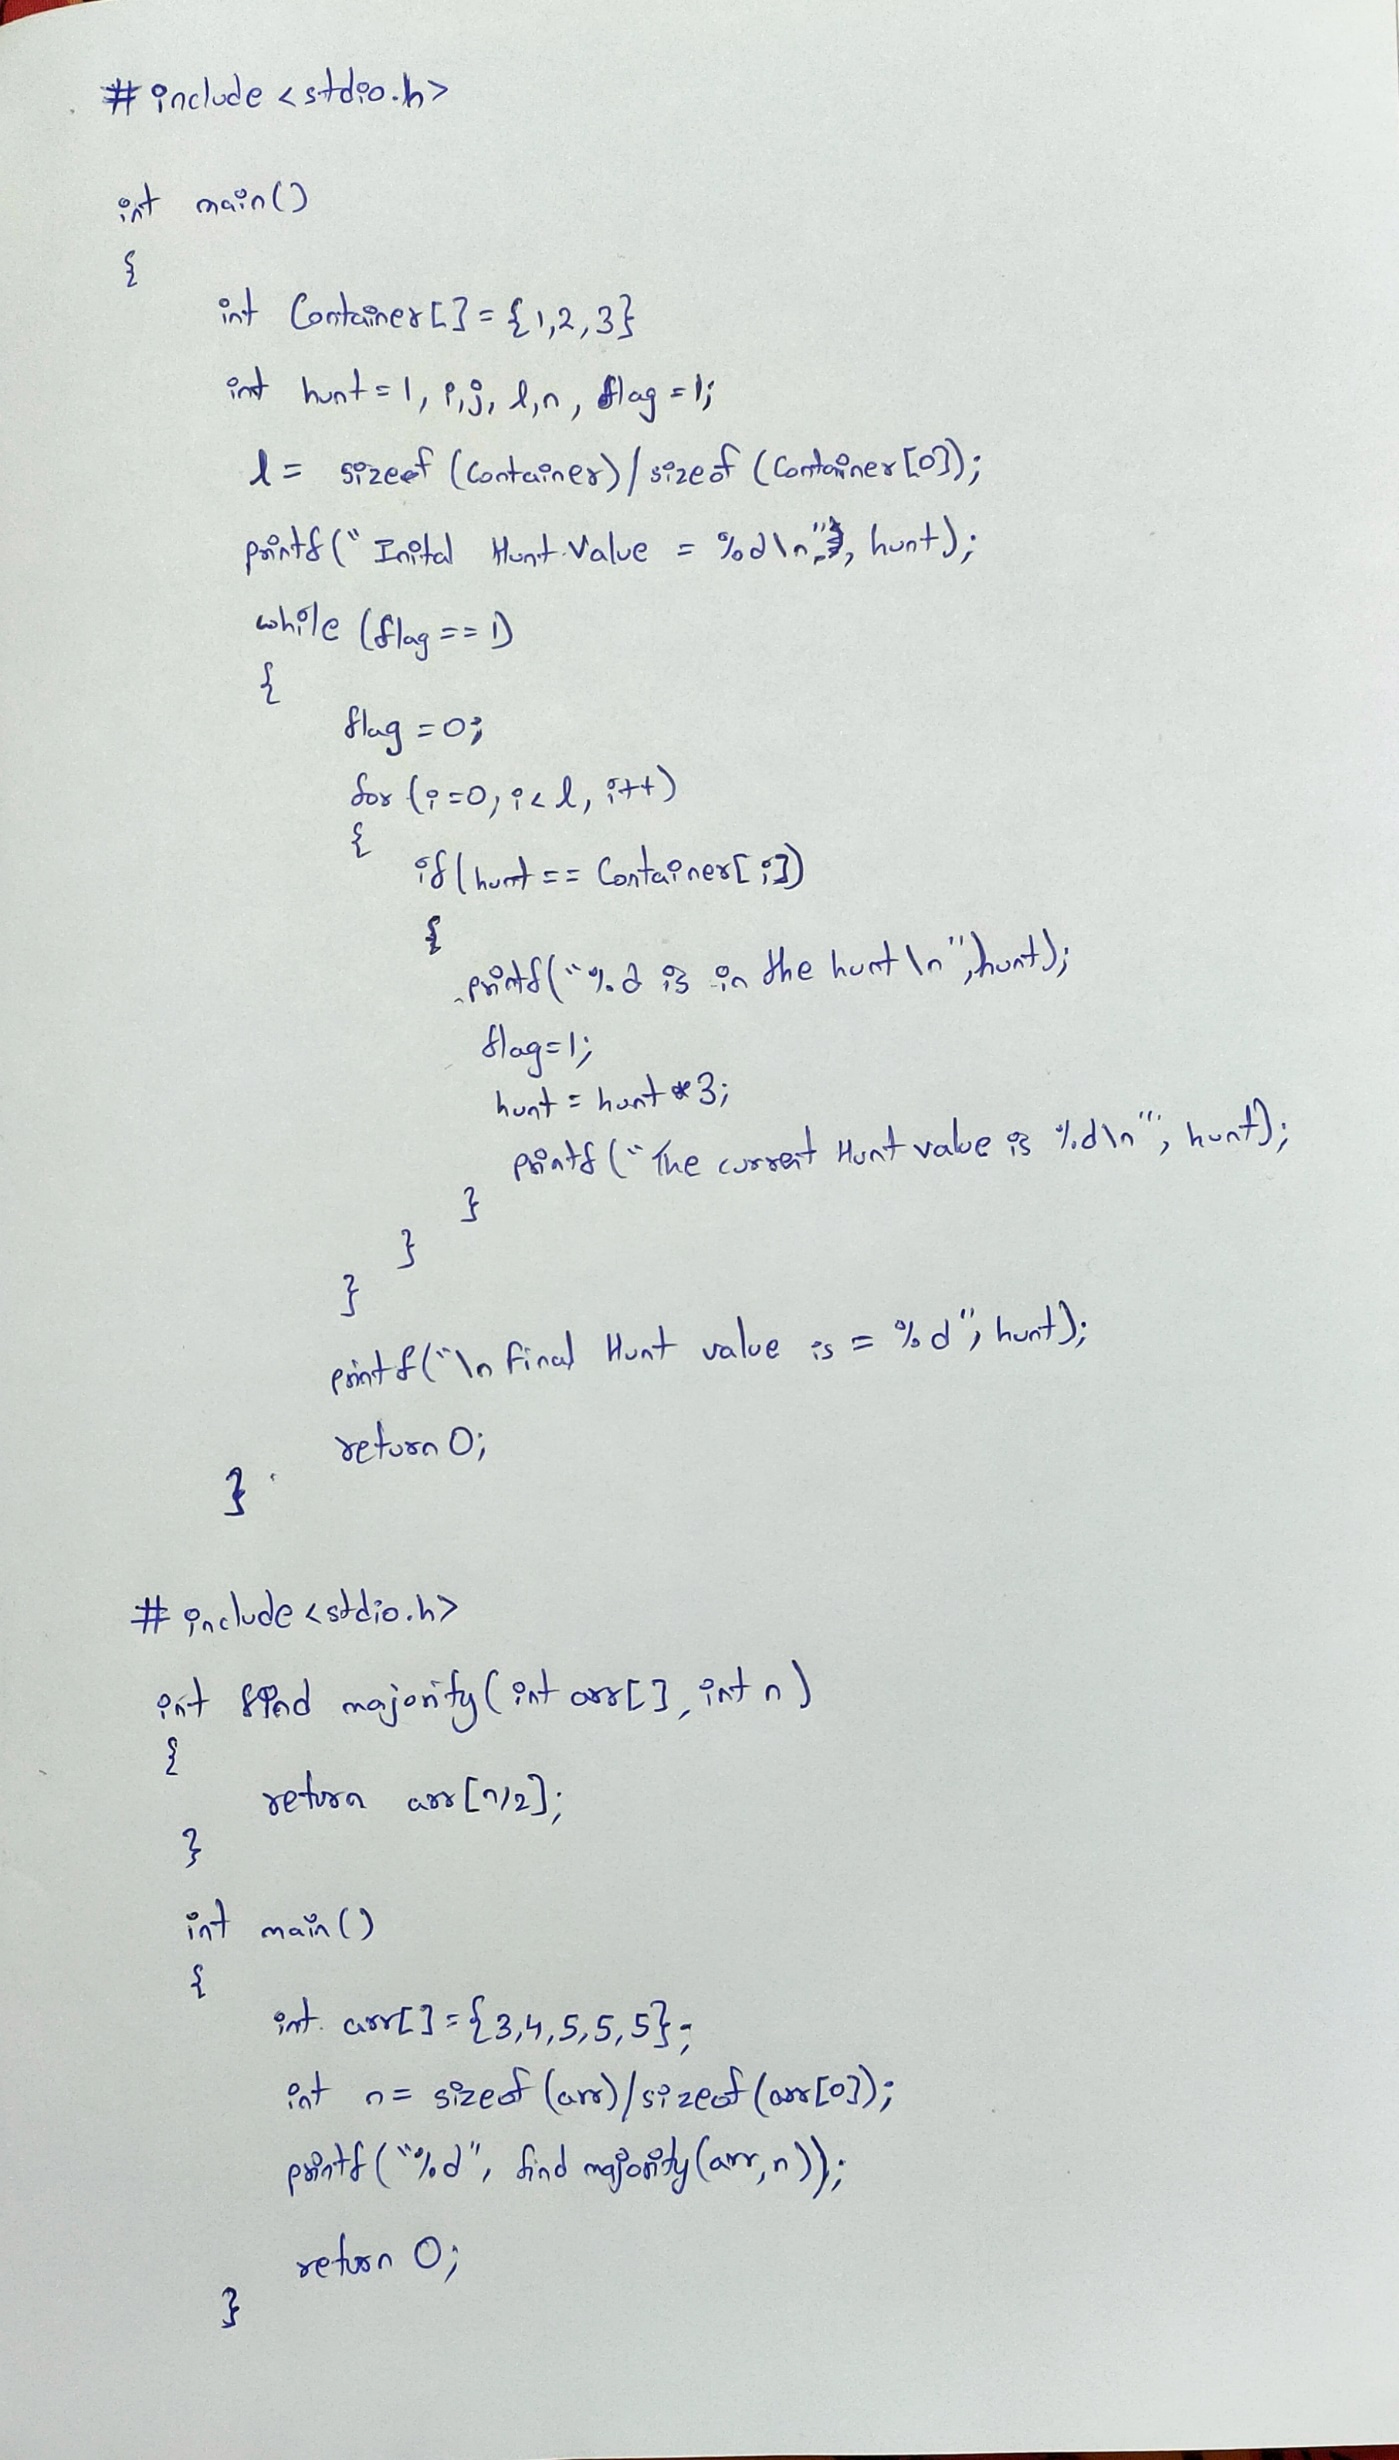 #include <stdio.h>
int main()
{
int Container[] = {1,2,3}
int hunt = 1, i,j, l,n, flag = 1;
l = sizeof (Container) / sizeof (Container[0]);
printf(" Inital Hunt Value = %d\n", hunt);
while (flag == 1)
{
flag = 0;
for (i=0; i<l, i++)
{
if(hunt == Container[i])
{
printf("%d is in the hunt \n", hunt);
flag=1;
hunt = hunt * 3;
printf("The current Hunt value is %d\n", hunt);
}
}
}
printf("\n Final Hunt value is = %d", hunt);
return 0;
}
#include <stdio.h>
int find majority(int arr[], int n)
{
return arr[n/2];
}
int main()
{
int arr[] = {3,4,5,5,5};
int n = sizeof (arr) / sizeof (arr[0]);
printf("%d", find majority(arr,n));
return 0;
}